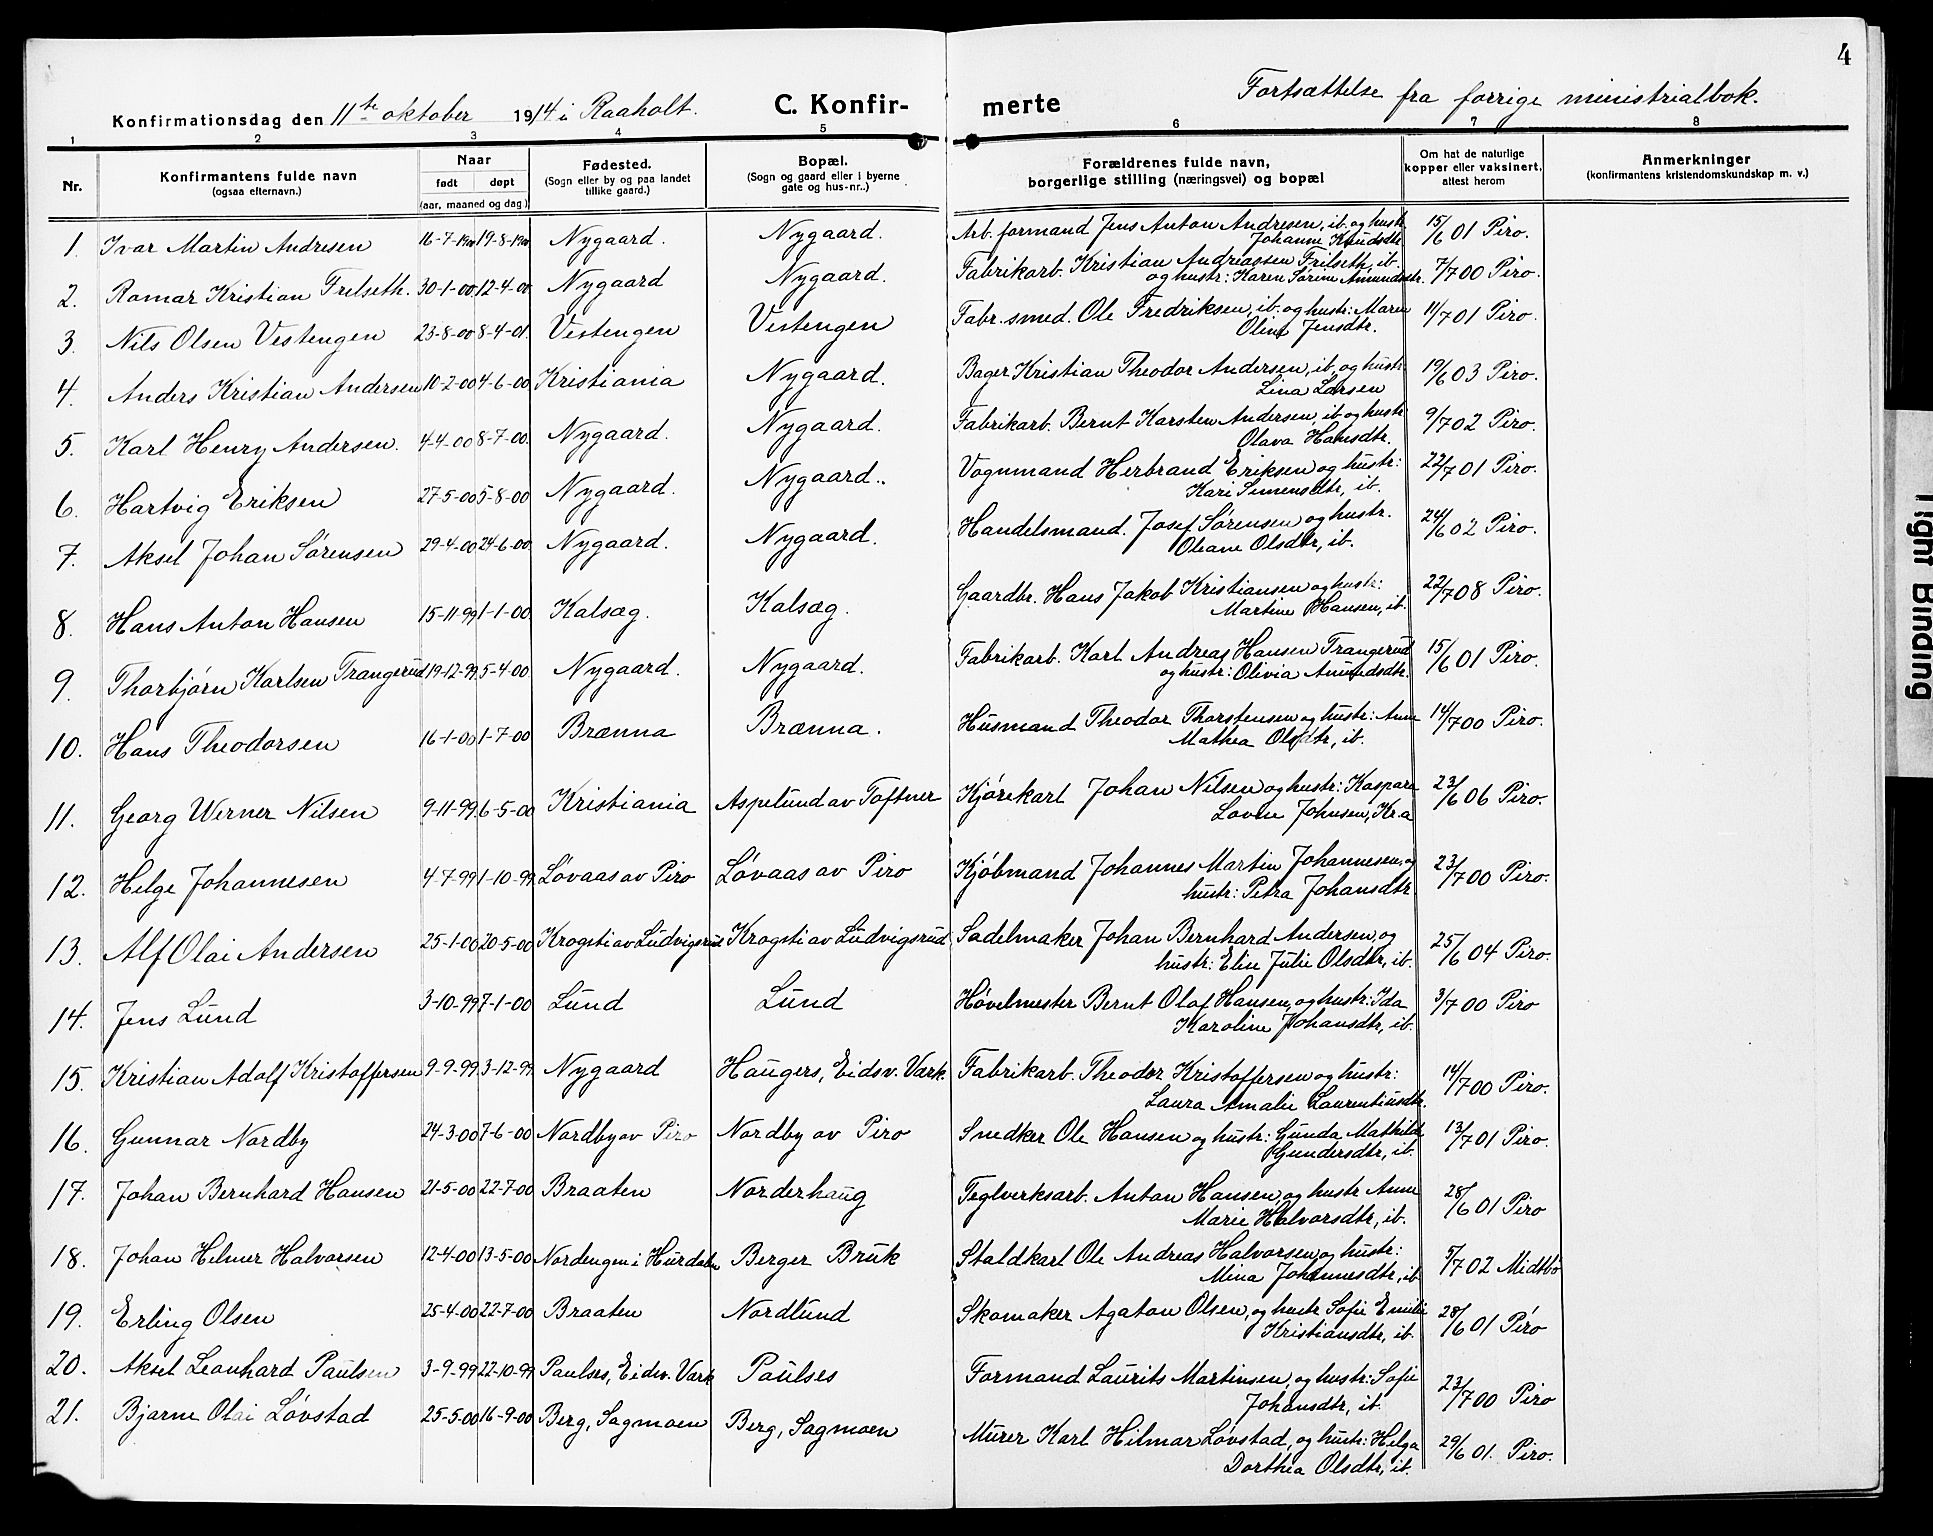 4
Fortsættelse fra forrige ministrialbok.
Konfirmationsdag den 11te oktober 1914 i Raaholt. C. Konfir- merte
1 2 3 4 5 6 7 8
Nr. Konfirmantens fulde navn (ogsaa efternavn.) Naar født døpt (aar, maaned og dag) Fødested. (Sogn eller by og paa landet tillike gaard.) Bopæl. (Sogn og gaard eller i byerne gate og hus-nr..) Forældrenes fulde navn, borgerlige stilling (næringsvei) og bopæl Om hat de naturlige kopper eller vaksinert, attest herom Anmerkninger (konfirmantens kristendomskundskap m. v.)
1. Ivar Martin Andresen 16-7-1900 19-8-1900 Nygaard. Nygaard. Arb. formand Jens Anton Andresen, ib. og hustr. 15/6 01 Piro.
Johanne Knudsdtr.
2. Ramar Kristian Frilseth. 30-1-00 12-4-00 Nygaard Nygaard. Fabrikarb. Kristian Andreassen Frilseth, ib. 7/7 00 Piro.
og hustr: Karen Sørine Amundsdtr.
3. Nils Olsen Vestengen 23-8-00 8-4-01. Vestengen Vestengen Fabr. smed. Ole Fredriksen, ib. og hustr: Maren 11/7 01 Piro.
Oline Jensdtr.
4. Anders Kristian Andersen 10-2-00 4-6-00 Kristiania Nygaard. Bager Kristian Theodor Andersen, ib. og hustr. 19/6 03 Piro.
Lina Larsen
5. Karl Henry Andersen. 4-4-00 8-7-00. Nygaard. Nygaard. Fabrikarb. Bernt Karsten Andersen, ib. og hustr. 9/7 02 Piro.
Olava Hansdtr.
6. Hartvig Eriksen 27-5-00 5-8-00 Nygaard. Nygaard.. Vognmand Herbrand Eriksen og hustr: 22/7 01 Piro.
Kari Simensdtr, ib.
7. Aksel Johan Sørensen 29-4-00 24-6-00 Nygaard. Nygaard. Handelsmand. Josef Sørensen og hustr. 24/6 02 Piro.
Oleane Olsdtr, ib.
8. Hans Anton Hansen 15-11-99 1-1-00 Kalsæg. Kalsæg. Gaardbr. Hans Jakob Kristiansen og hustr: 22/7 08 Piro.
Martine Hansen, ib.
9. Thorbjørn Karlsen Trangerud 19-12-99. 5-4-00 Nygaard. Nygaard. Fabrikarb. Karl Andreas Hansen Trangerud 15/6 01 Piro.
og hustr: Olivia Amundsdtr.
10. Hans Theodorsen 16-1-00 1-7-00 Brænna Brænna. Husmand Theodor Thorstensen og hustr: Anne 14/7 00 Piro.
Mathea Olsdtr, ib.
11. Georg Werner Nilsen 9-11-99. 6-5-00 Kristiania Aspelund av Toftner Kjørekarl Johan Nilsen og hustr: Kaspara 23/6 06 Piro.
Lovise Johnsen, Kr.a
12. Helge Johannesen 4-7-99 1-10-99. Løvaas av Piro Løvaas av Piro Kjøbmand Johannes Martin Johannesen, og 23/7 00 Piro.
hustr: Petra Johansdtr.
13. Alf Olai Andersen 25-1-00 20-5-00 Krogsti av Ludvigsrud Krogsti av Ludvigsrud Sadelmaker Johan Bernhard Andersen, og 25/6 04 Piro.
hustr: Elise Julie Olsdtr, ib.
14. Jens Lund 3-10-99 7-1-00 Lund Lund Høvelmester Bernt Olaf Hansen, og hustr: Ida 3/7 00 Piro
Karoline Johansdtr, ib.
15. Kristian Adolf Kristoffersen 9-9-99. 3-12-99. Nygaard Haugers, Eidsv. Værk Fabrikarb. Theodor Kristoffersen og hustr: 14/7 00 Piro.
Laura Amalie Laurentiusdtr.
16. Gunnar Nordby 24-3-00 7-6-00 Nordby av Piro Nordby av Piro Snedker Ole Hansen og hustr: Gunda Mathilde 13/7 01 Piro.
Gundersdtr, ib.
17. Johan Bernhard Hansen 21-5-00 22-7-00 Braaten Norderhaug Teglverksarb. Anton Hansen, og hustr Anne 28/6 01 Piro
Marie Halvorsdtr, ib.
18. Johan Helmer Halvorsen 12-4-00 13-5-00 Nordengen i Hurdalen Berger Bruk Staldkarl Ole Andreas Halvorsen, og hustr: 5/7 02 Midtbø
Mina Johannesdtr, ib
19. Erling Olsen 25-4-00 22-7-00 Braaten Nordlund Skomaker Agaton Olsen, og hustr Sofie Emilie 28/6 01 Piro
Kristiansdtr, ib.
20. Aksel Leonhard Paulsen 3-9-99 22-10-99 Paulses, Eidsv. Værk Paulses Formand Laurits Martinsen, og hustr: Sofie 23/7 00 Piro
Johansdtr, ib.
21. Bjarne Olai Løvstad 25-5-00 16-9-00 Berg, Sagmoen Berg, Sagmoen Murer Karl Hilmar Løvstad, og hustr: Helga 29/6 01. Piro.
Dorthea Olsdtr, ib.
Tight Binding